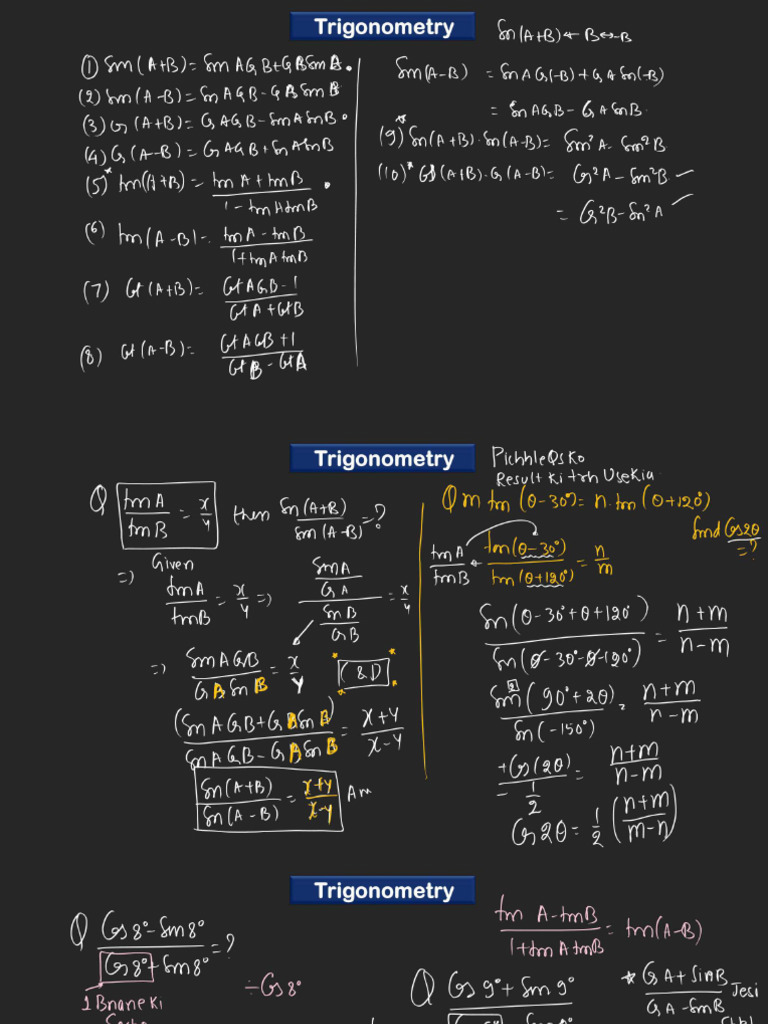 Trigonometry
(1) Sin(A+B) = Sin A Cos B + Cos A Sin B.
(2) Sin(A-B) = Sin A Cos B - Cos A Sin B
(3) Cos(A+B) = Cos A Cos B - Sin A Sin B
(4) Cos(A-B) = Cos A Cos B + Sin A Sin B
(5)* tan(A+B) = (tan A + tan B)/(1 - tan A tan B)
(6) tan(A-B) = (tan A - tan B)/(1 + tan A tan B)
(7) Cot(A+B) = (Cot A Cot B - 1)/(Cot A + Cot B)
(8) Cot(A-B) = (Cot A Cot B + 1)/(Cot B - Cot A)
Sin(A+B) ← B↔-B
Sin(A-B) = Sin A Cos(-B) + Cos A Sin(-B)
= Sin A Cos B - Cos A Sin B.
(9)* Sin(A+B).Sin(A-B) = Sin²A - Sin²B
(10)* Cos(A+B).Cos(A-B) = Cos²A - Sin²B
= Cos²B - Sin²A
Trigonometry
Q tan A/tan B = x/y then Sin(A+B)/Sin(A-B) = ?
=) Given
tan A/tan B = x/y =) (Sin A/Cos A)/(Sin B/Cos B) = x/y
=) Sin A Cos B/Cos A Sin B = x/y C & D
(Sin A Cos B + Cos A Sin B)/(Sin A Cos B - Cos A Sin B) = (x+y)/(x-y)
Sin(A+B)/Sin(A-B) = (x+y)/(x-y) Ans
Pichhle Qs Ko
Result Ki trh Use Kia
Q m tan(θ-30°) = n.tan(θ+120°)
find Cos2θ = ?
tan A/tan B ← tan(θ-30°)/tan(θ+120°) = n/m
Sin(θ-30°+θ+120°)/Sin(θ-30°-θ-120°) = (n+m)/(n-m)
Sin(90°+2θ)/Sin(-150°) = (n+m)/(n-m)
+Cos(2θ)/(-1/2) = (n+m)/(n-m)
Cos2θ = 1/2 ((n+m)/(m-n))
Trigonometry
Q (Cos8° - Sin8°)/(Cos8° + Sin8°) = ?
1 Bnane Ki
÷Cos8°
(tan A - tan B)/(1 + tan A tan B) = tan(A-B)
Q Cos9° + Sin9°
* (Cos A + Sin B)/(Cos A - Sin B) Jesi